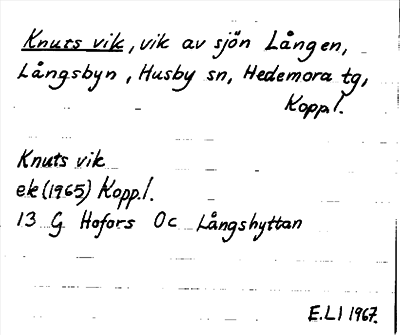 Knuts vik, vik av sjön Lången,
Långsbyn, Husby sn, Hedemora tg,
Kopp.l.
Knuts vik
ek (1965) Kopp.l.
13 G Hofors 0c Långshyttan
E.LI 1967.